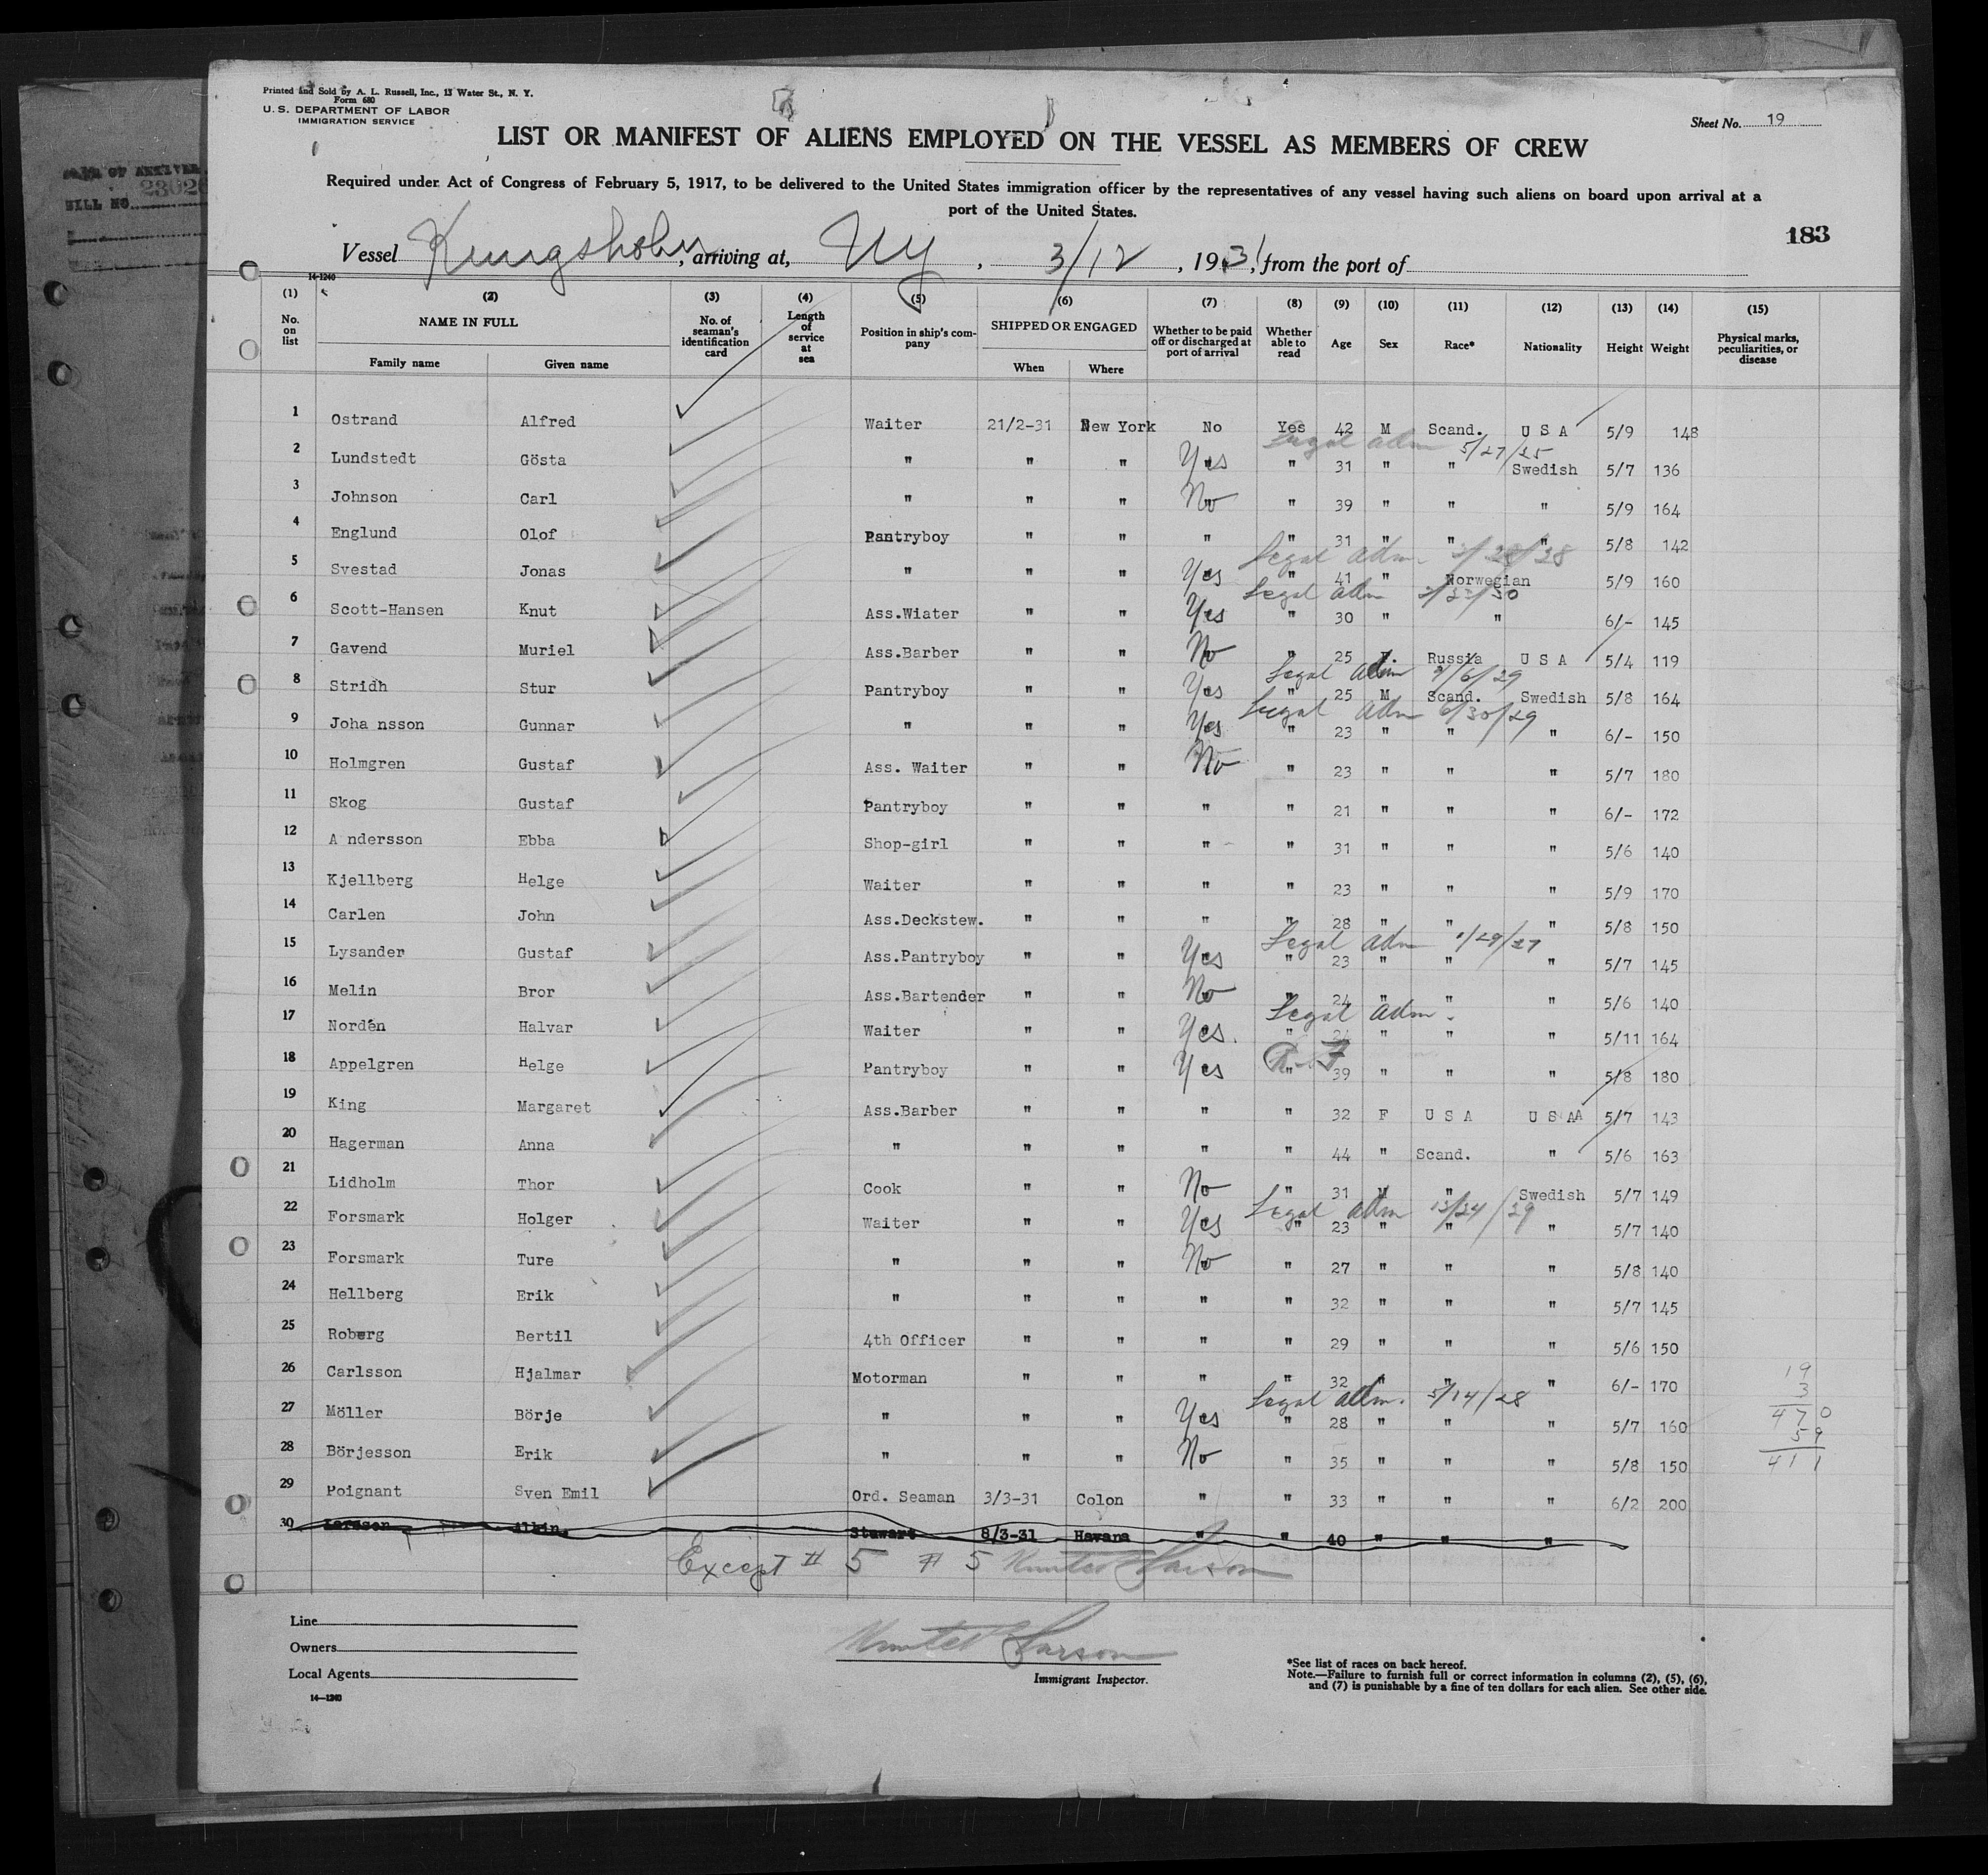 Printed and Sold by A. L. Russell, Inc., 11 Water St., N. Y.
Form 680
U. S. DEPARTMENT OF LABOR
IMMIGRATION SERVICE
Sheet No. 19
LIST OR MANIFEST OF ALIENS EMPLOYED ON THE VESSEL AS MEMBERS OF CREW
Required under Act of Congress of February 5, 1917, to be delivered to the United States immigration officer by the representatives of any vessel having such aliens on board upon arrival at a
port of the United States.
183
Vessel Kungsholm, arriving at, NY, 3/12, 1931, from the port of
14-1240
(1) (2) (3) (4) (5) (6) (7) (8) (9) (10) (11) (12) (13) (14) (15)
No. on list NAME IN FULL No. of seaman's identification card Length of service at sea Position in ship's company SHIPPED OR ENGAGED Whether to be paid off or discharged at port of arrival Whether able to read Age Sex Race* Nationality Height Weight Physical marks, peculiarities, or disease
Family name Given name When Where
1 Ostrand Alfred Waiter 21/2-31 New York No Yes 42 M Scand. U S A 5/9 148
Legal adm 5/27/25
2 Lundstedt Gösta " " " Yes " 31 " " Swedish 5/7 136
3 Johnson Carl " " " No " 39 " " " 5/9 164
4 Englund Olof Pantryboy " " " " 31 " " " 5/8 142
Legal adm
5 Svestad Jonas " " " Yes " 41 " Norwegian 5/9 160
Legal adm
6 Scott-Hansen Knut Ass.Wiater " " Yes " 30 " " 6/- 145
7 Gavend Muriel Ass.Barber " " No " 25 F. Russia U S A 5/4 119
Legal adm /6/29
8 Stridh Stur Pantryboy " " Yes " 25 M Scand. Swedish 5/8 164
Legal adm 6/30/29
9 Joha nsson Gunnar " " " Yes " 23 " " " 6/- 150
10 Holmgren Gustaf Ass. Waiter " " No " 23 " " " 5/7 180
11 Skog Gustaf Pantryboy " " " " 21 " " " 6/- 172
12 A ndersson Ebba Shop-girl " " " " 31 " " " 5/6 140
13 Kjellberg Helge Waiter " " " " 23 " " " 5/9 170
14 Carlen John Ass.Deckstew. " " " " 28 " " " 5/8 150
Legal adm /29/27
15 Lysander Gustaf Ass.Pantryboy " " Yes " 23 " " " 5/7 145
16 Melin Bror Ass.Bartender " " No " 24 " " " 5/6 140
Legal adm.
17 Nordén Halvar Waiter " " Yes. " " " " 5/11 164
18 Appelgren Helge Pantryboy " " Yes " 39 " " " 5/8 180
19 King Margaret Ass.Barber " " " " 32 F U S A U S AA 5/7 143
20 Hagerman Anna " " " " " 44 " Scand. " 5/6 163
21 Lidholm Thor Cook " " No " 31 M " Swedish 5/7 149
Legal adm /24/29
22 Forsmark Holger Waiter " " Yes " 23 " " " 5/7 140
23 Forsmark Ture " " " No " 27 " " " 5/8 140
24 Hellberg Erik " " " " " 32 " " " 5/7 145
25 Roberg Bertil 4th Officer " " " " 29 " " " 5/6 150
26 Carlsson Hjalmar Motorman " " " " 32 " " " 6/- 170
19
3
Legal adm. 5/14/28
27 Möller Börje " " " Yes " 28 " " " 5/7 160
470
59
28 Börjesson Erik " " " No " 35 " " " 5/8 150
411
29 Poignant Sven Emil Ord. Seaman 3/3-31 Colon " " 33 " " " 6/2 200
30 Larsson Albin. Stewart 8/3-31 Havana " " 40 " " "
Except # 5 # 5 Larson
Line
Owners
Local Agents
14—1240
Larson
Immigrant Inspector.
*See list of races on back hereof.
Note.—Failure to furnish full or correct information in columns (2), (5), (6),
and (7) is punishable by a fine of ten dollars for each alien. See other side.